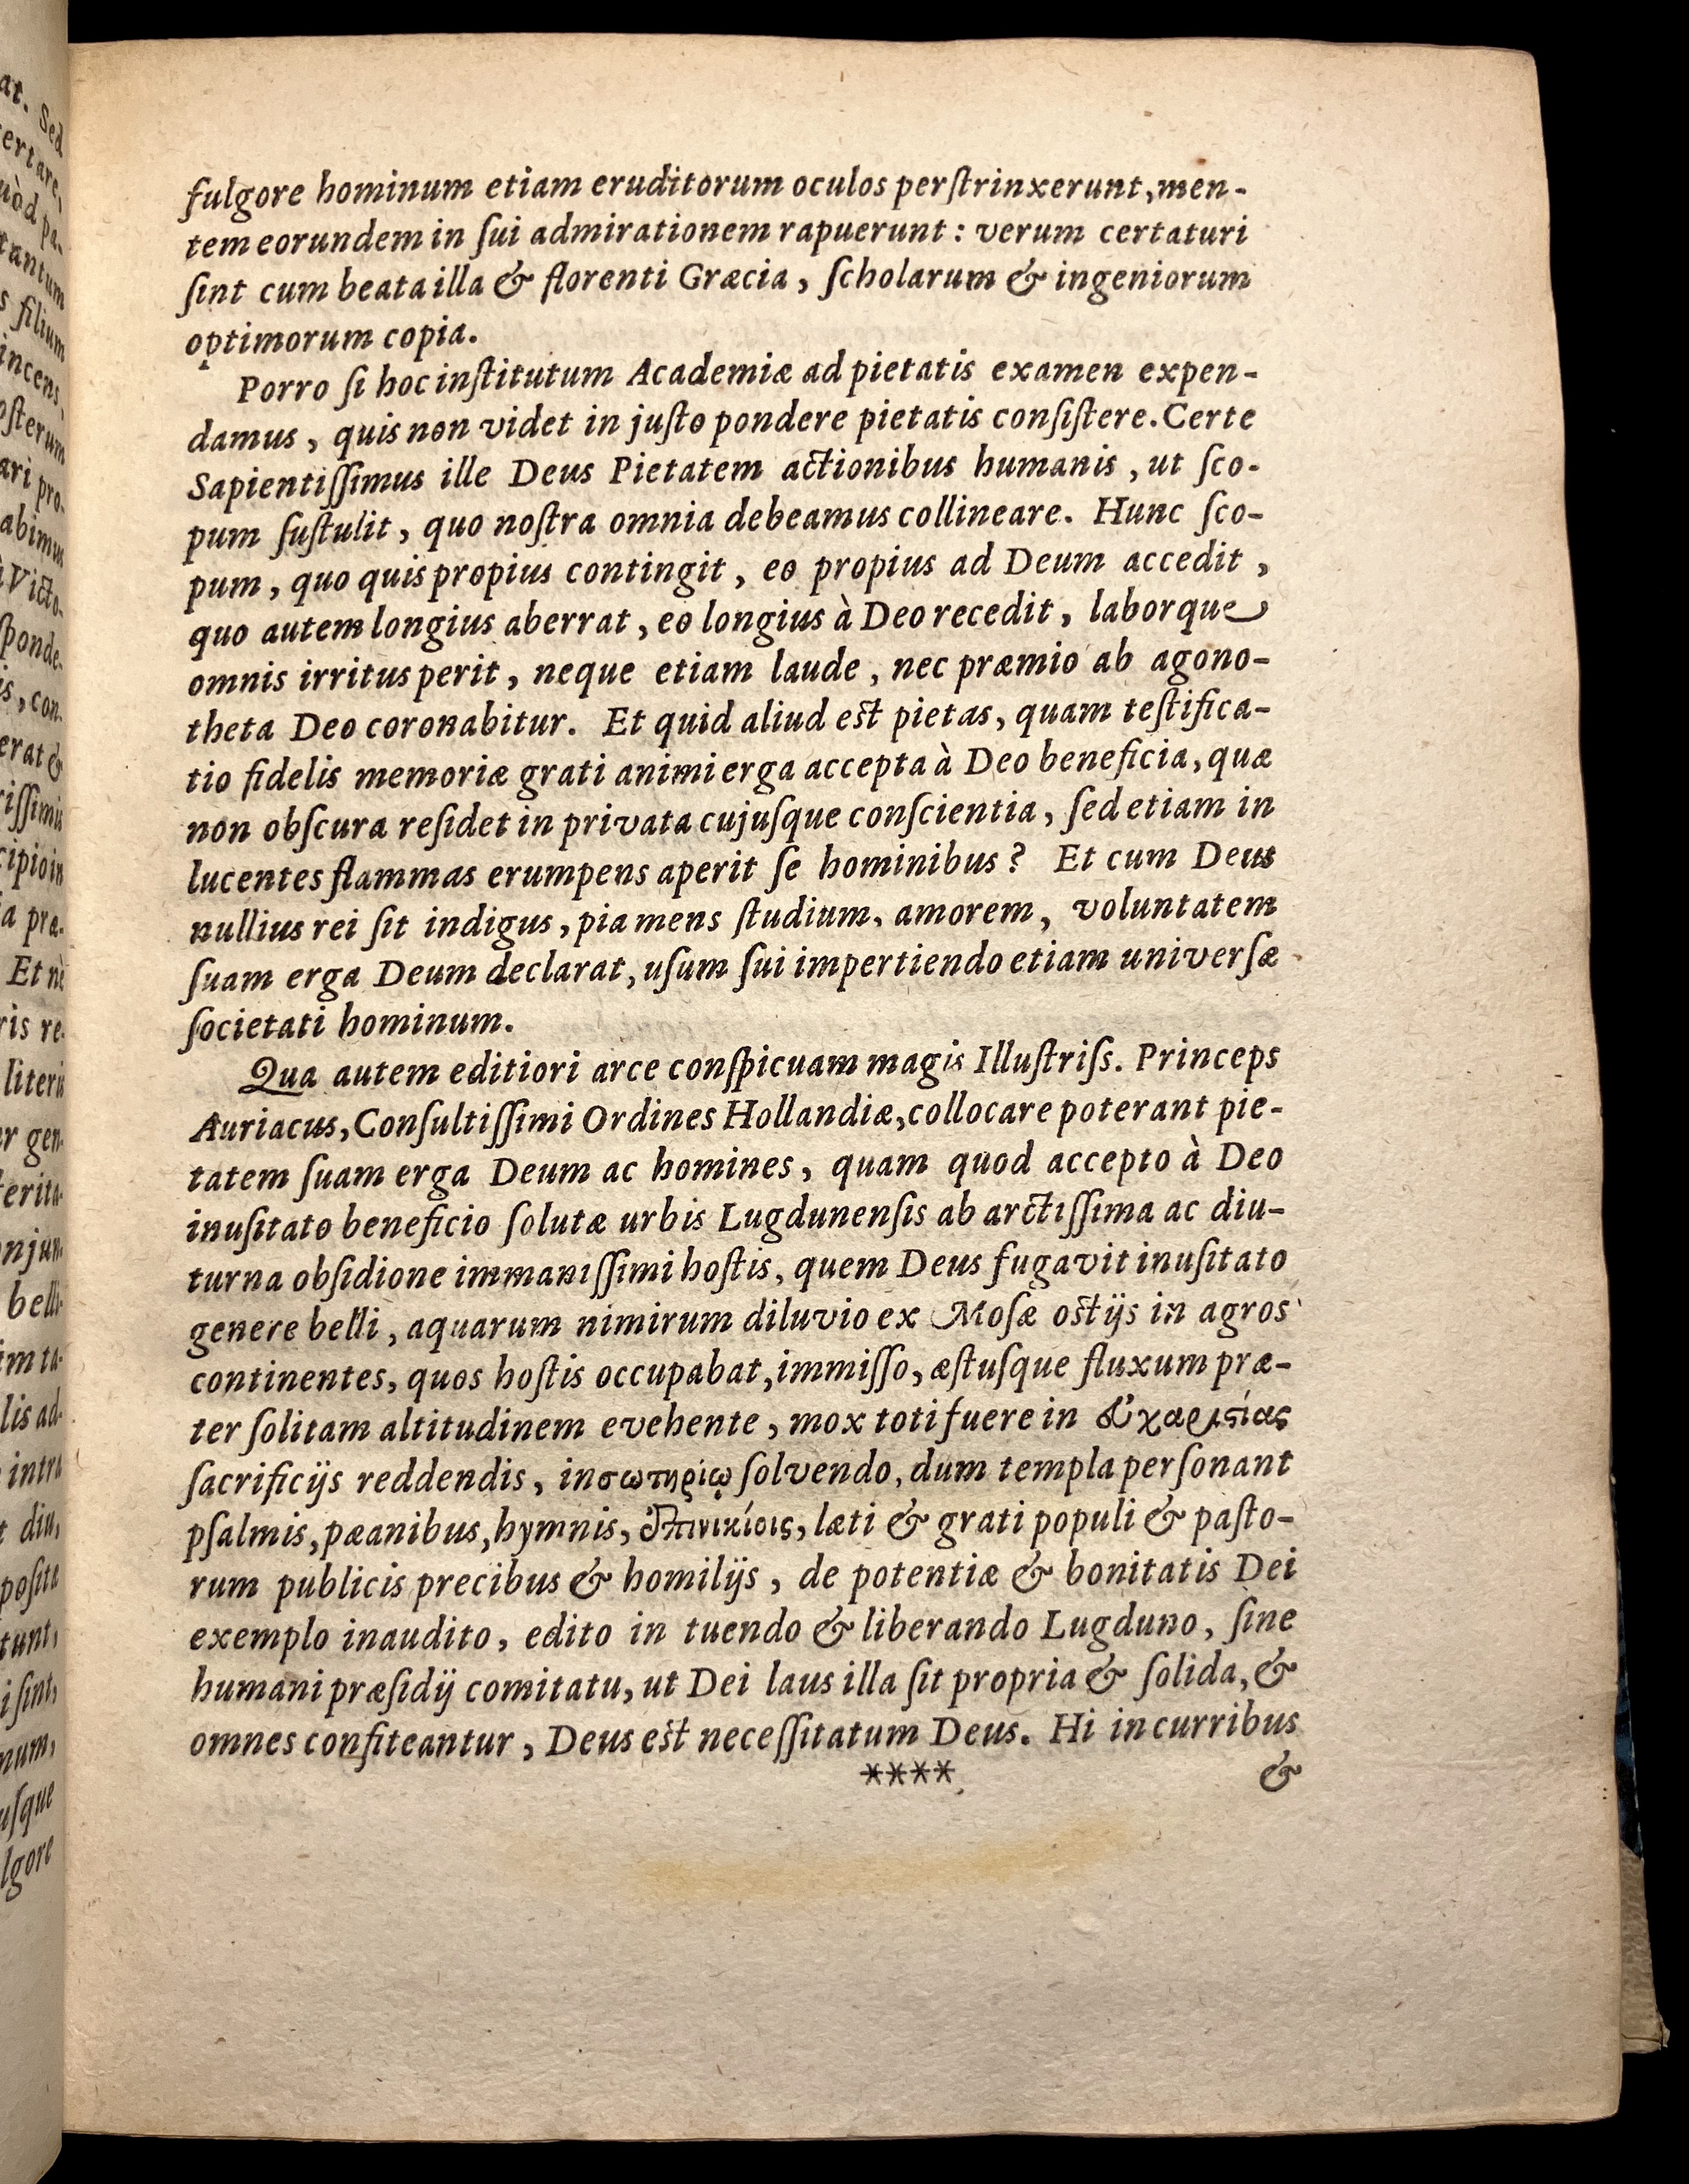 fulgore hominum etiam eruditorum oculos perſtrinxerunt, men-
tem eorundem in ſui admirationem rapuerunt : verum certaturi
ſint cum beata illa & florenti Græcia, ſcholarum & ingeniorum
optimorum copia.
Porro ſi hoc inſtitutum Academiæ ad pietatis examen expen-
damus, quis non videt in juſto pondere pietatis conſiſtere. Certe
Sapientiſſimus ille Deus Pietatem actionibus humanis, ut ſco-
pum ſuſtulit, quo noſtra omnia debeamus collineare. Hunc ſco-
pum, quo quis propius contingit, eo propius ad Deum accedit,
quo autem longius aberrat, eo longius à Deo recedit, laborque
omnis irritus perit, neque etiam laude, nec præmio ab agono-
theta Deo coronabitur. Et quid aliud est pietas, quam teſtifica-
tio fidelis memoriæ grati animi erga accepta à Deo beneficia, quæ
non obſcura reſidet in privata cujuſque conſcientia, ſed etiam in
lucentes flammas erumpens aperit ſe hominibus? Et cum Deus
nullius rei ſit indigus, pia mens ſtudium, amorem, voluntatem
ſuam erga Deum declarat, uſum ſui impertiendo etiam univerſæ
ſocietati hominum.
Qua autem editiori arce conſpicuam magis Illuſtriſs. Princeps
Auriacus, Conſultiſſimi Ordines Hollandiæ, collocare poterant pie-
tatem ſuam erga Deum ac homines, quam quod accepto à Deo
inuſitato beneficio ſolutæ urbis Lugdunenſis ab arctiſſima ac diu-
turna obſidione immaniſſimi hoſtis, quem Deus fugavit inuſitato
genere belli, aquarum nimirum diluvio ex Moſæ ostijs in agros
continentes, quos hoſtis occupabat, immiſſo, æſtuſque fluxum præ-
ter ſolitam altitudinem evehente, mox toti fuere in εὐχαριστίας
ſacrificijs reddendis, in σωτηρίῳ ſolvendo, dum templa perſonant
pſalmis, pæanibus, hymnis, ἐπινικίοις, læti & grati populi & paſto-
rum publicis precibus & homilijs, de potentiæ & bonitatis Dei
exemplo inaudito, edito in tuendo & liberando Lugduno, ſine
humani præſidij comitatu, ut Dei laus illa ſit propria & ſolida, &
omnes confiteantur, Deus est neceſſitatum Deus. Hi in curribus
**** &